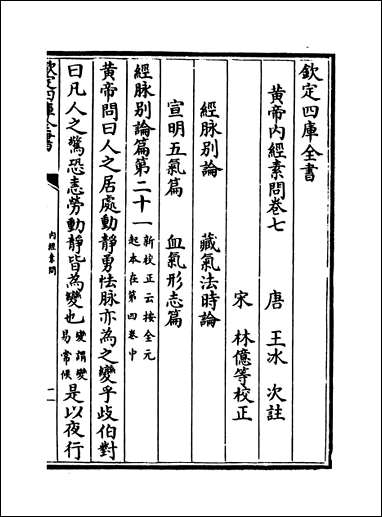 欽定四庫全書
黃帝內經素問卷七
唐 王冰 次註
宋 林億等校正
經脉別論 藏氣法時論
宣明五氣篇 血氣形志篇
經脉別論篇第二十一新校正云按全元起本在第四卷中
黃帝問曰人之居處動靜勇怯脉亦為之變乎歧伯對
曰凡人之驚恐恚勞動靜皆為變也變謂變易常候是以夜行
欽定四庫全書
內經素問
一